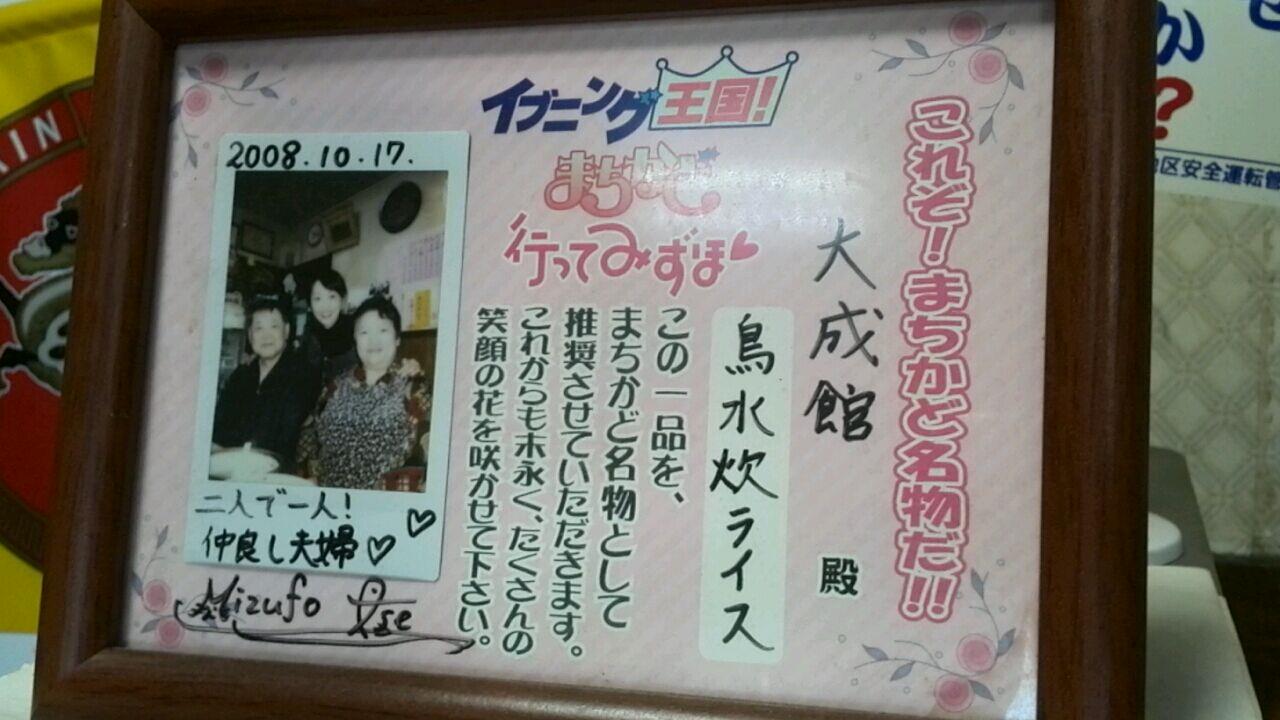 これぞ！まちかど名物だ!!
大成館 殿
鳥水炊ライス
この一品を、
まちかど名物として
推奨させていただきます。
これからも末永く、たくさんの
笑顔の花を咲かせて下さい。
イブニング王国！
まちかど
行ってみずほ♥
2008.10.17.
二人で一人！
仲良し夫婦♡♡
Mizufo
か
？
地区安全運転管
KIN